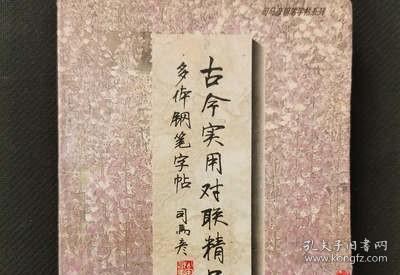 司马彦钢笔字帖系列
古今实用对联精品
多体钢笔字帖
司马彦
孔夫子旧书网
www.kongfz.com